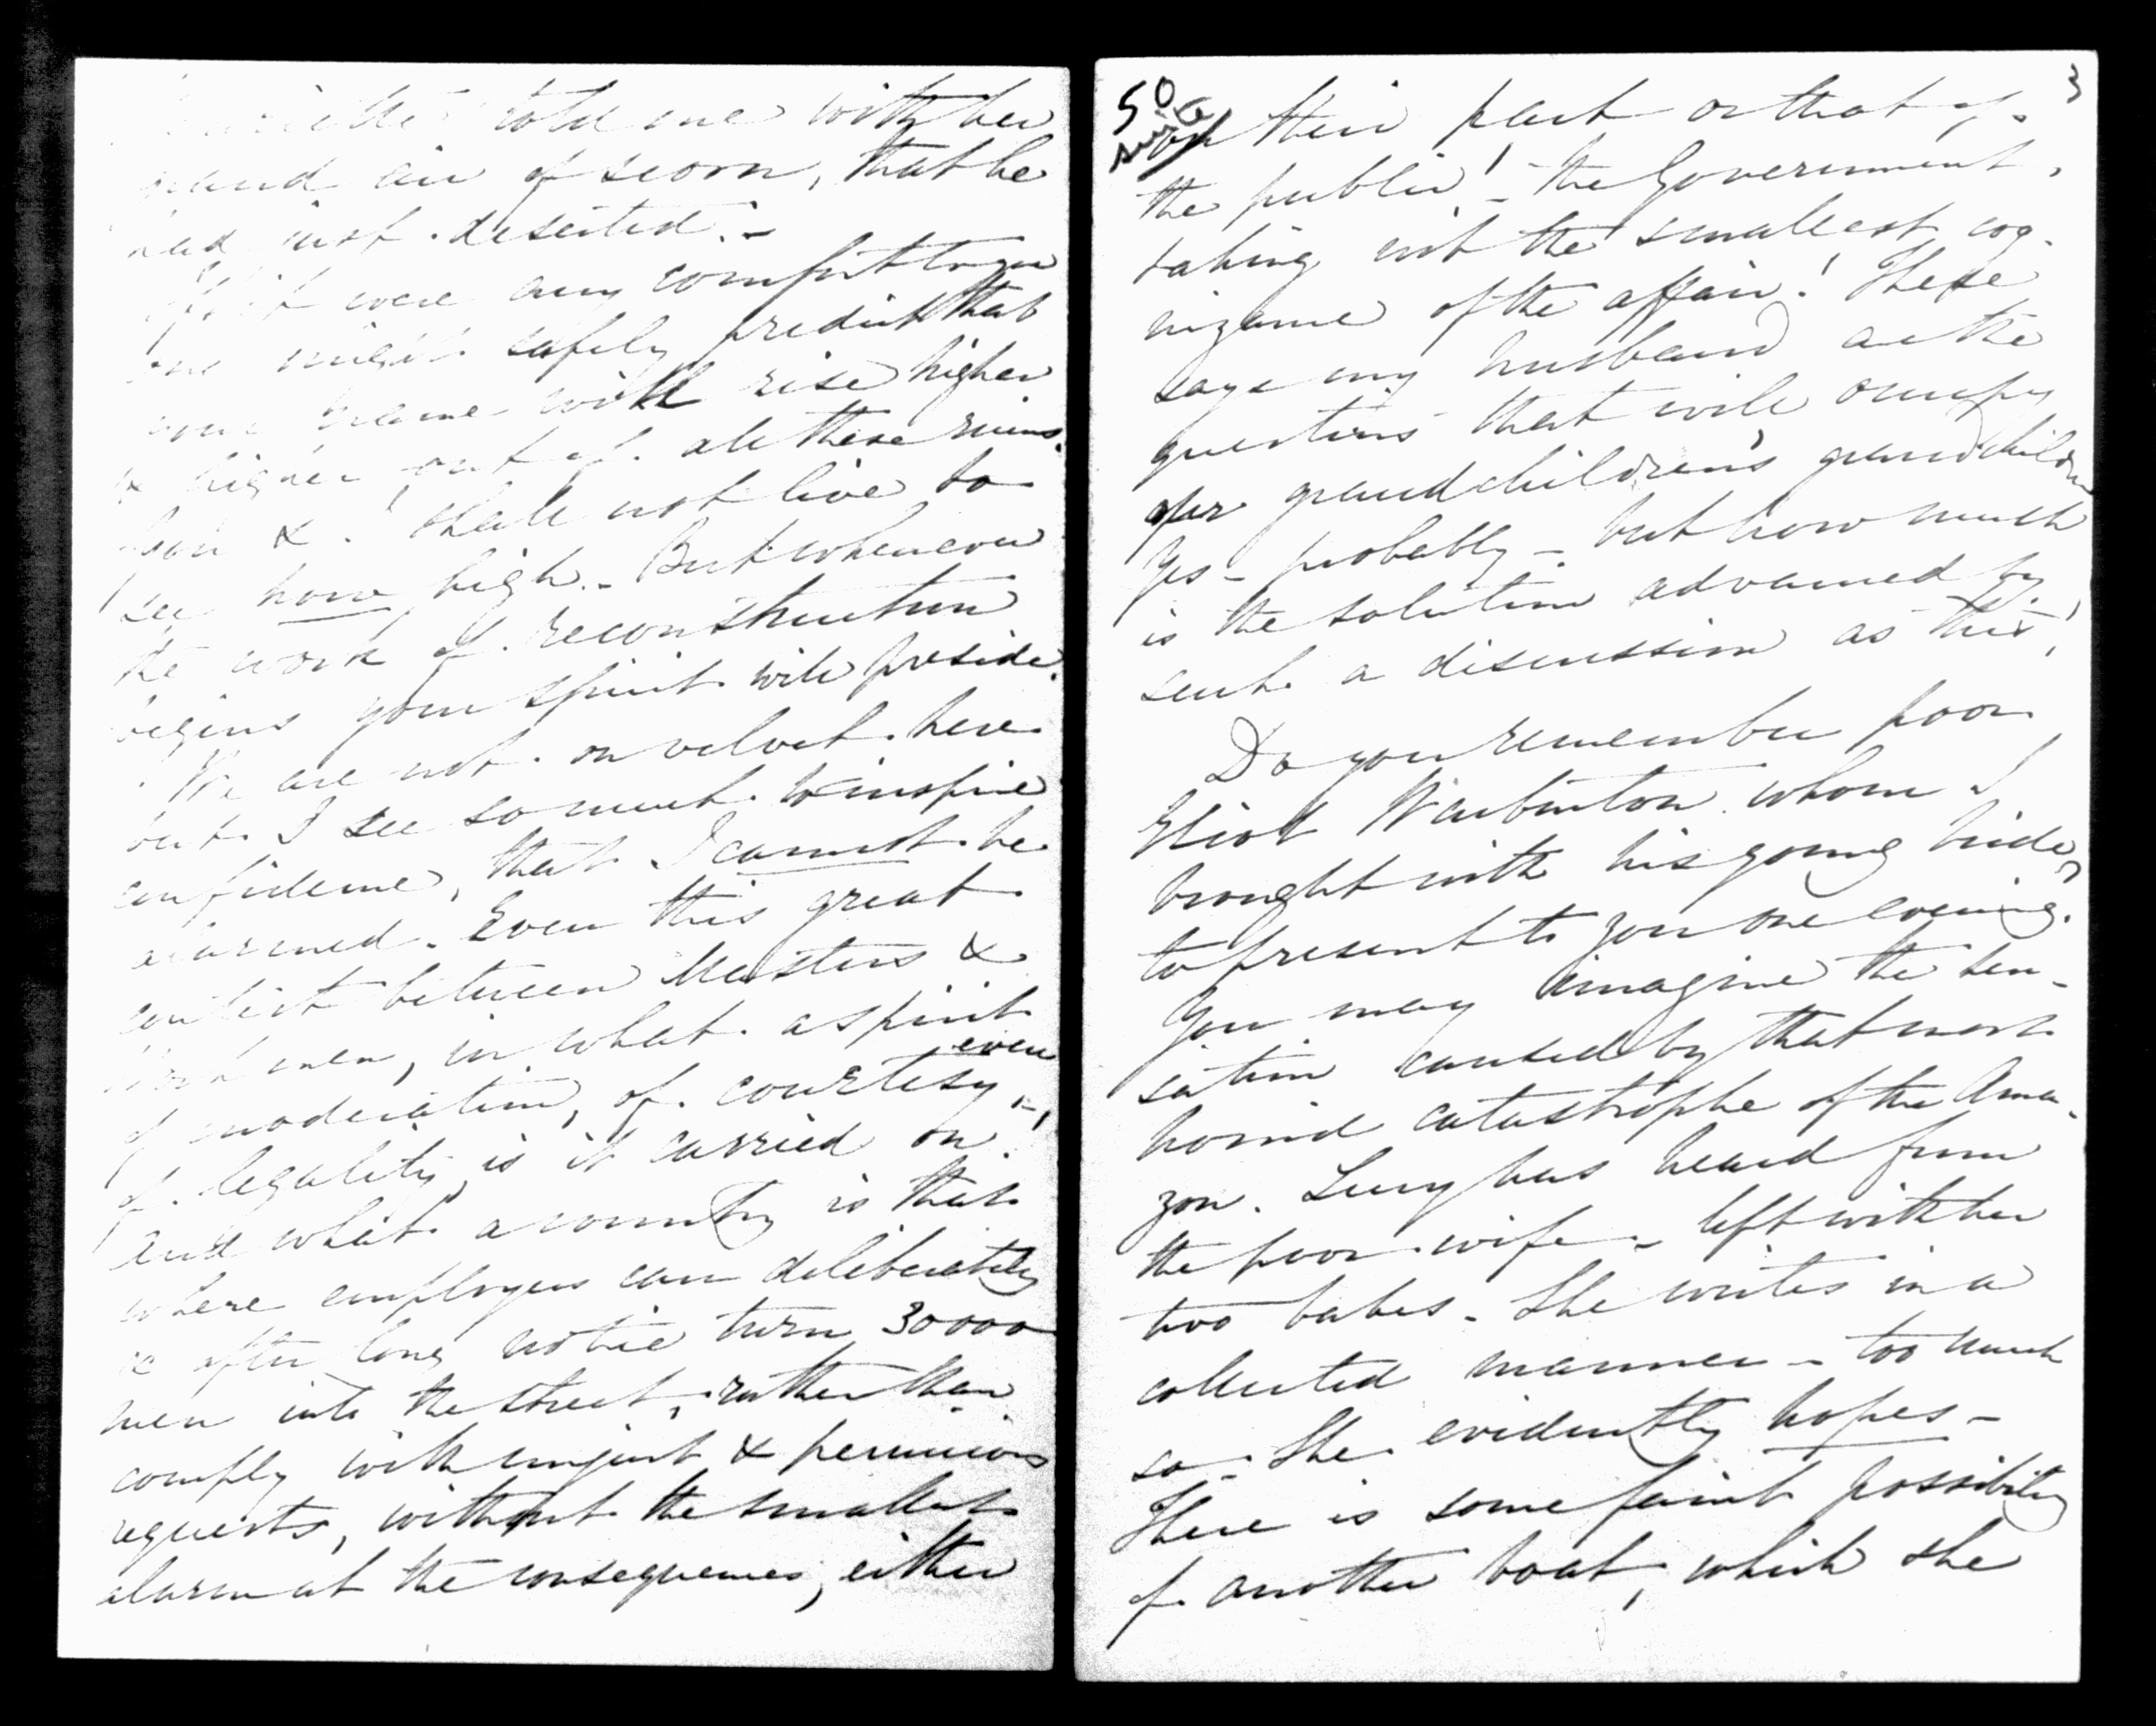 told me with her
grand air of scorn, that he
had just deserted. -
If it were any comfort to you
one might safely predict that
your name will rise higher
& higher out of all these ruins.
You & I shall not live to
see how high. - But whenever
the work of reconstruction
begins your spirit will preside.
We are not on velvet here
but I see so much to inspire
confidence, that I cannot be
alarmed. Even this great
contest between Masters &
Workmen, in what a spirit
of moderation, of courtesy, even
of legality is it carried on!
And what a country is that
where employers can deliberately
& after long notice turn 30000
men into the street, rather than
comply with unjust & pernicious
requests, without the smallest
alarm at the consequences, either
50
suite
3
on their part or that of
the public! - the Government
taking not the smallest cog-
nizance of the affair! These
says my husband are the
questions that will occupy
our grandchildren's grandchildren
Yes - probably - but how much
is the solution advanced by
such a discussion as this!
Do you remember poor
Eliot Warburton whom I
brought with his young bride,
to present to you one evening.
You may imagine the sen-
sation caused by that most
horrid catastrophe of the Ama-
zon. Lucy has heard from
the poor wife - left with her
two babes - She writes in a
collected manner - too much
so - She evidently hopes -
There is some faint possibility
of another boat, which she